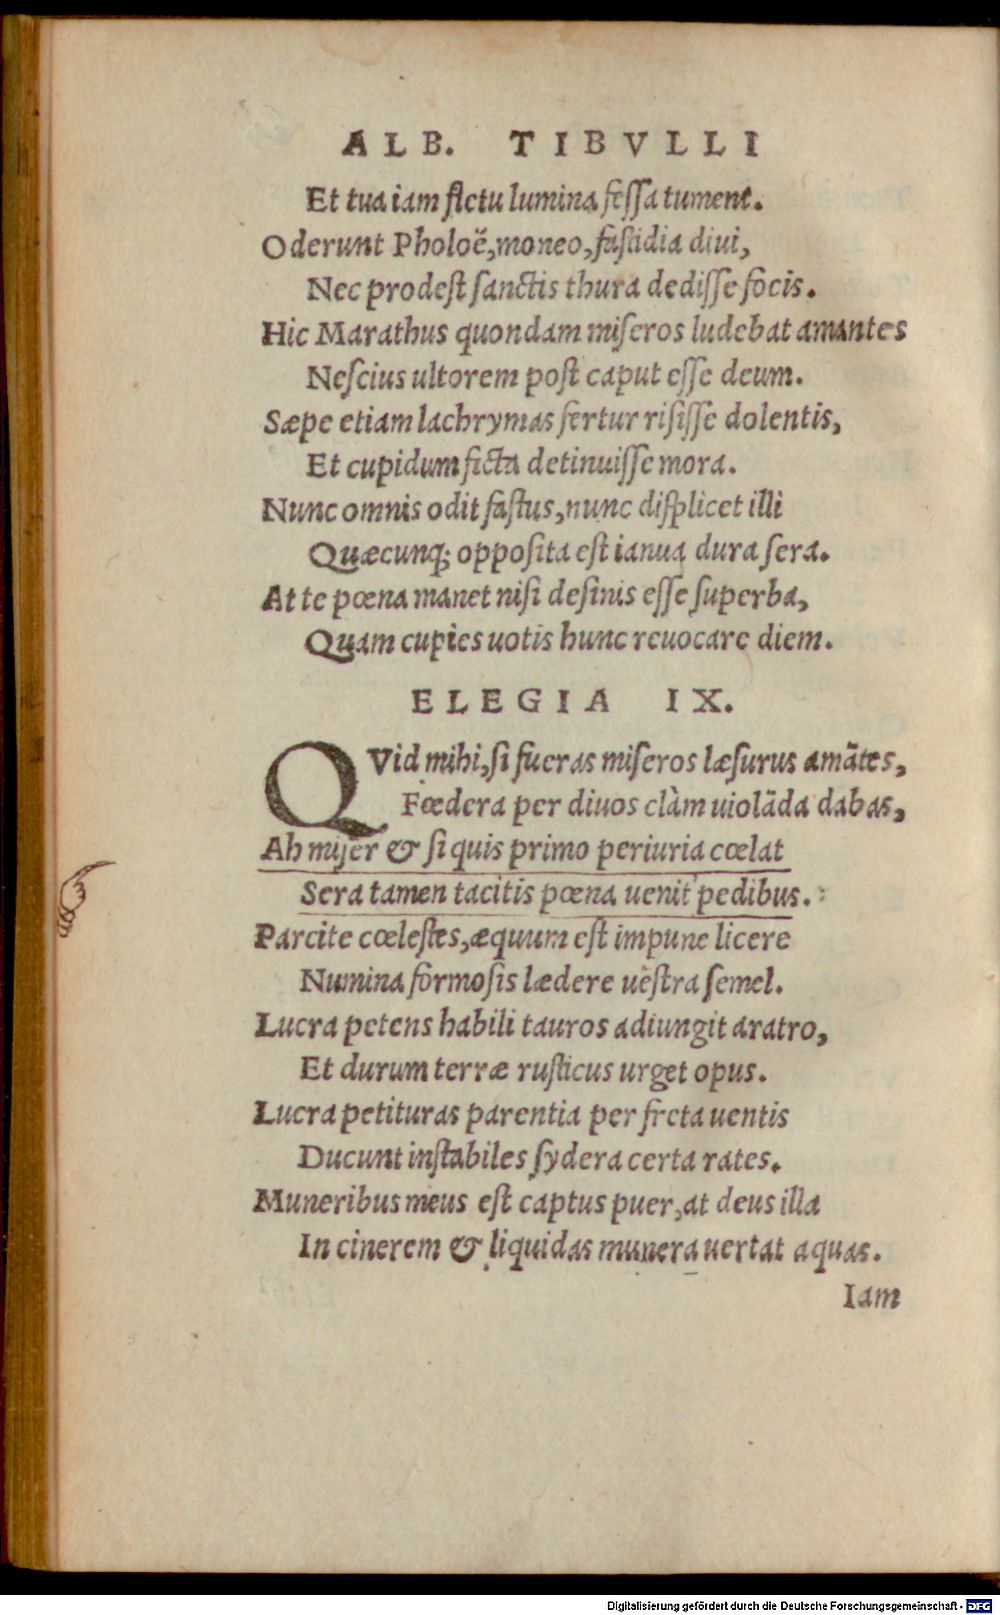 ALB. TIBVLLI
Et tua iam fletu lumina feſſa tument.
Oderunt Pholoë, moneo, faſtidia diui,
Nec prodeſt ſanctis thura dediſſe focis.
Hic Marathus quondam miſeros ludebat amantes
Neſcius ultorem poſt caput eſſe deum.
Sæpe etiam lachrymas fertur riſiſſe dolentis,
Et cupidum ficta detinuiſſe mora.
Nunc omnis odit faſtus, nunc diſplicet illi
Quæcunq; oppoſita eſt ianua dura ſera.
At te pœna manet niſi deſinis eſſe ſuperba,
Quam cupies uotis hunc reuocare diem.
ELEGIA IX.
QVid mihi, ſi fueras miſeros læſurus amãtes,
Fœdera per diuos clàm uiolãda dabas,
Ah miſer & ſi quis primo periuria cœlat
Sera tamen tacitis pœna uenit pedibus.
Parcite cœleſtes, æquum eſt impune licere
Numina formoſis lædere ueſtra ſemel.
Lucra petens habili tauros adiungit aratro,
Et durum terræ ruſticus urget opus.
Lucra petituras parentia per freta uentis
Ducunt inſtabiles ſydera certa rates.
Muneribus meus eſt captus puer, at deus illa
In cinerem & liquidas munera uertat aquas.
Iam
Digitalisierung gefördert durch die Deutsche Forschungsgemeinschaft - DFG